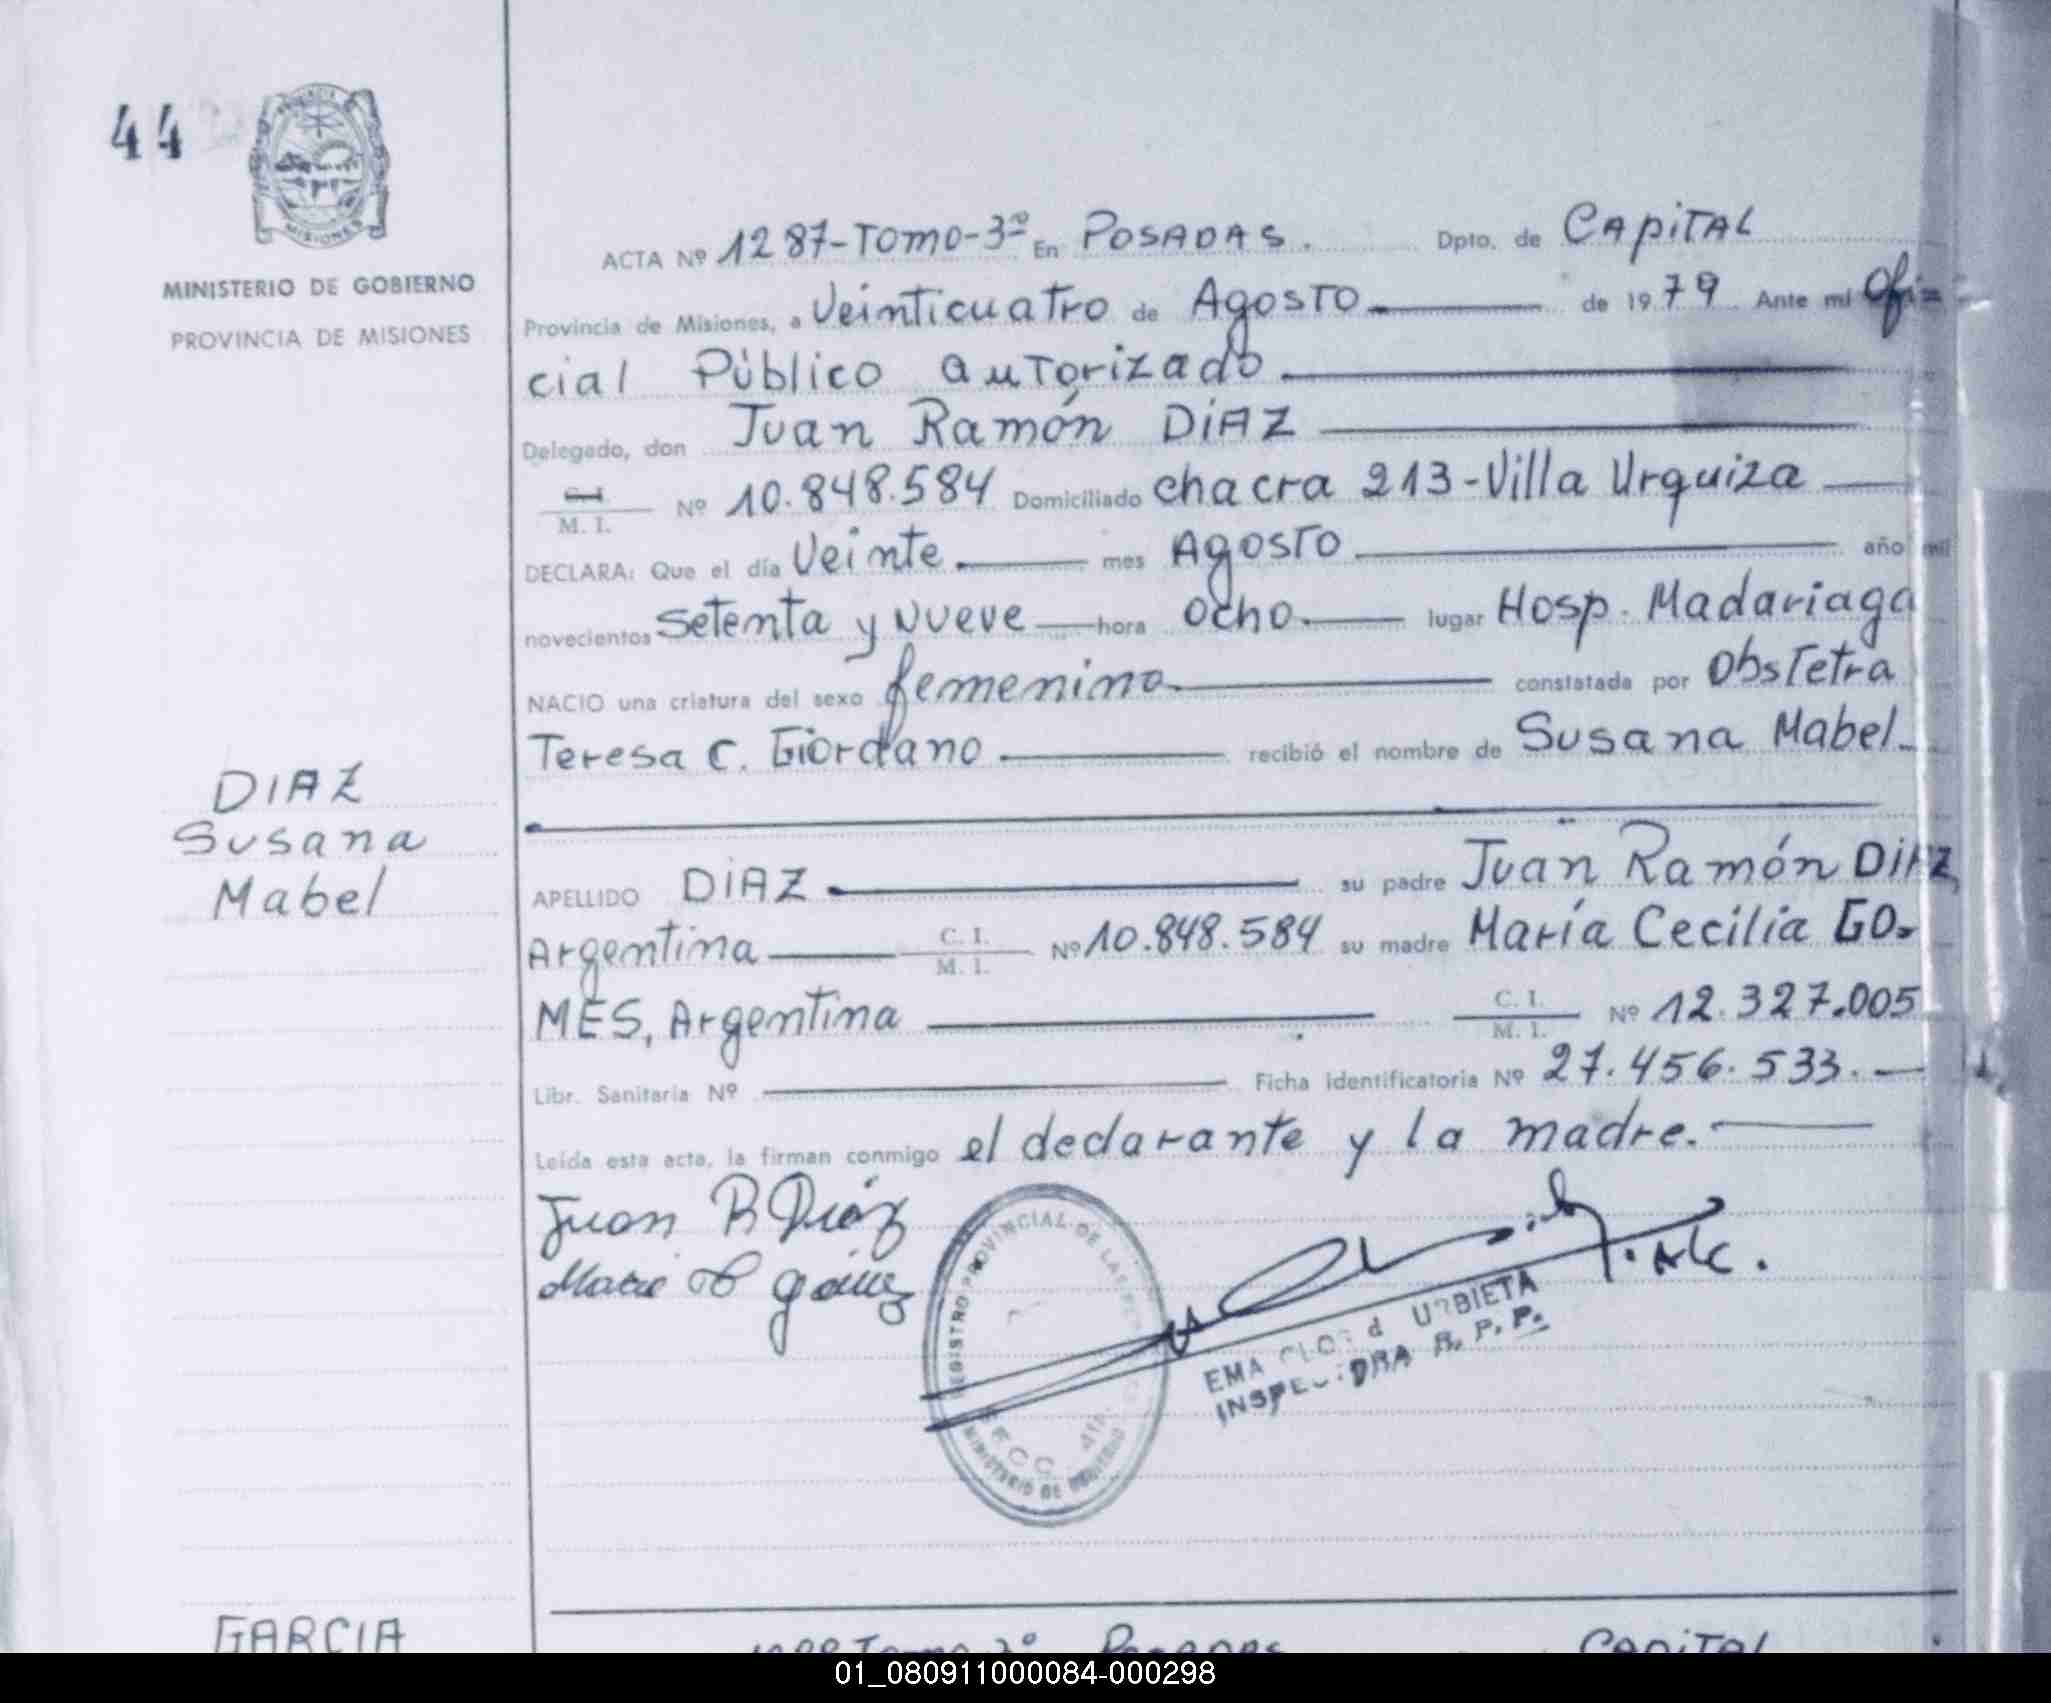 44
MINISTERIO DE GOBIERNO
PROVINCIA DE MISIONES
MISIONES
DIAZ
Susana
Mabel
ACTA Nº 1287-Tomo-3º En POSADAS. Dpto. de CAPITAL
Provincia de Misiones, a Veinticuatro de Agosto de 1979 Ante mi Ofi=
cial Público autorizado
Delegado, don Juan Ramón DIAZ
C. I. / M. I. Nº 10.848.584 Domiciliado chacra 213-Villa Urquiza
DECLARA: Que el día Veinte. mes Agosto año mil
novecientos Setenta y Nueve hora Ocho. lugar Hosp. Madariaga
NACIO una criatura del sexo femenino constatada por Obstetra
Teresa C. Giordano recibió el nombre de Susana Mabel.
APELLIDO DIAZ su padre Juan Ramón DIAZ,
Argentina C. I. / M. I. Nº 10.848.584 su madre María Cecilia GO-
MES, Argentina C. I. / M. I. Nº 12.327.005
Libr. Sanitaria Nº Ficha identificatoria Nº 27.456.533.
Leída esta acta, la firman conmigo el declarante y la madre.
Juan R Diaz
REGISTRO PROVINCIAL DE LAS
MINISTERIO DE GOBIERNO
EMA URBIETA
INSPECTORA R. P. P.
GARCIA
POSADAS CAPITAL
01_080911000084-000298